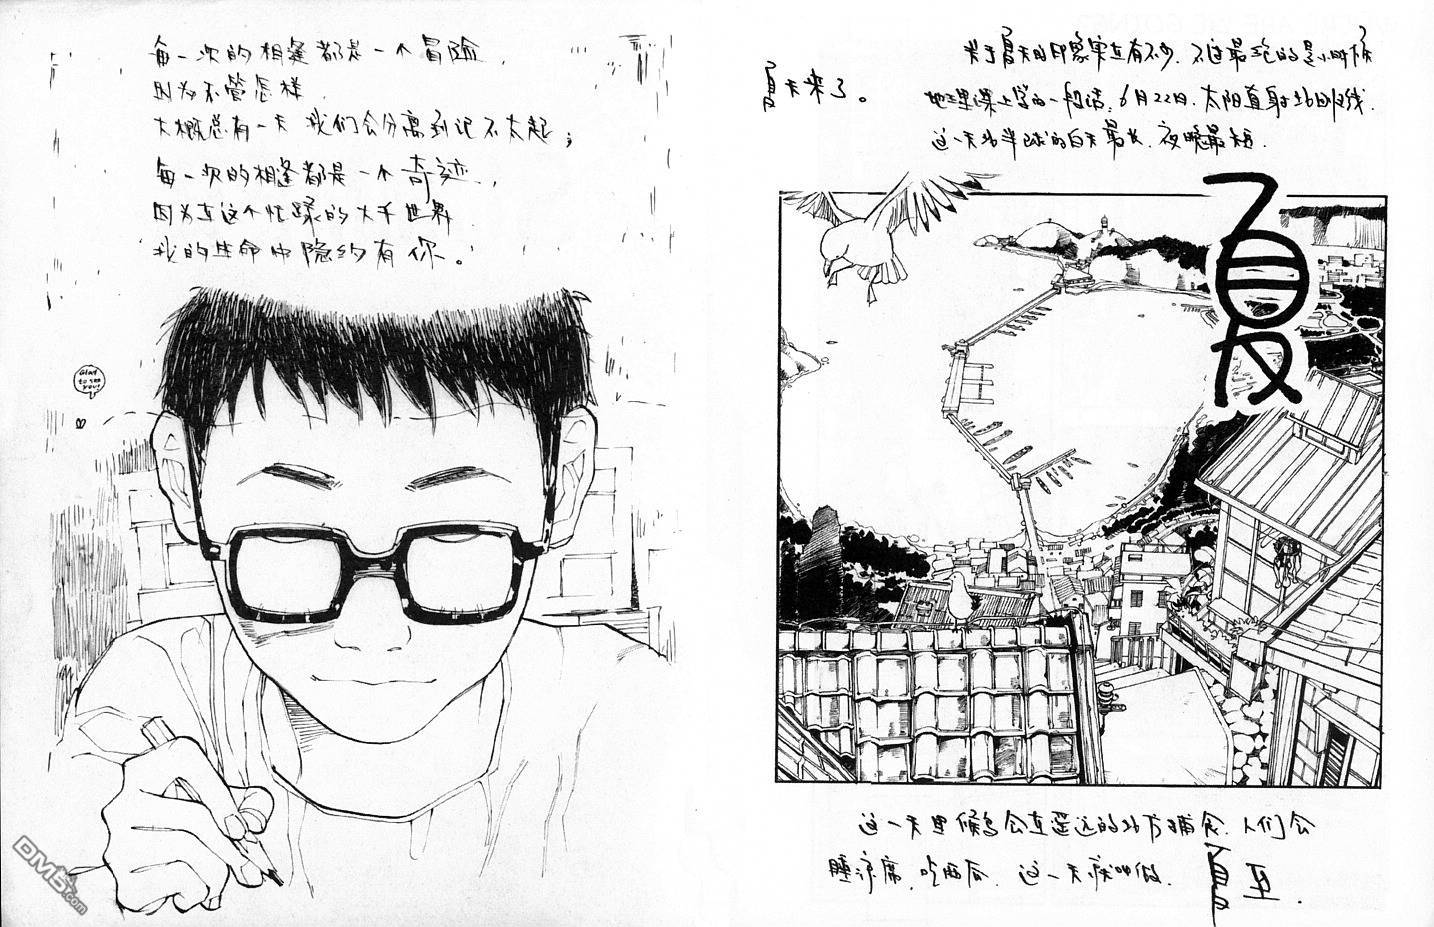 每一次的相逢都是一个冒险，
因为不管怎样
大概总有一天 我们会分离到记不太起；
每一次的相逢都是一个奇迹，
因为在这个忙碌的大千世界
我的生命中隐约有你。
Glad
to see
you!
夏天来了。
关于夏天的印象实在有不少，不过最绝的是小时候
地理课上学的一段话，6月22日，太阳直射北回归线，
这一天北半球的白天最长，夜晚最短
夏
这一天里候鸟会在遥远的北方捕食，人们会
睡凉席，吃西瓜，这一天我叫做
夏至.
DM5.com